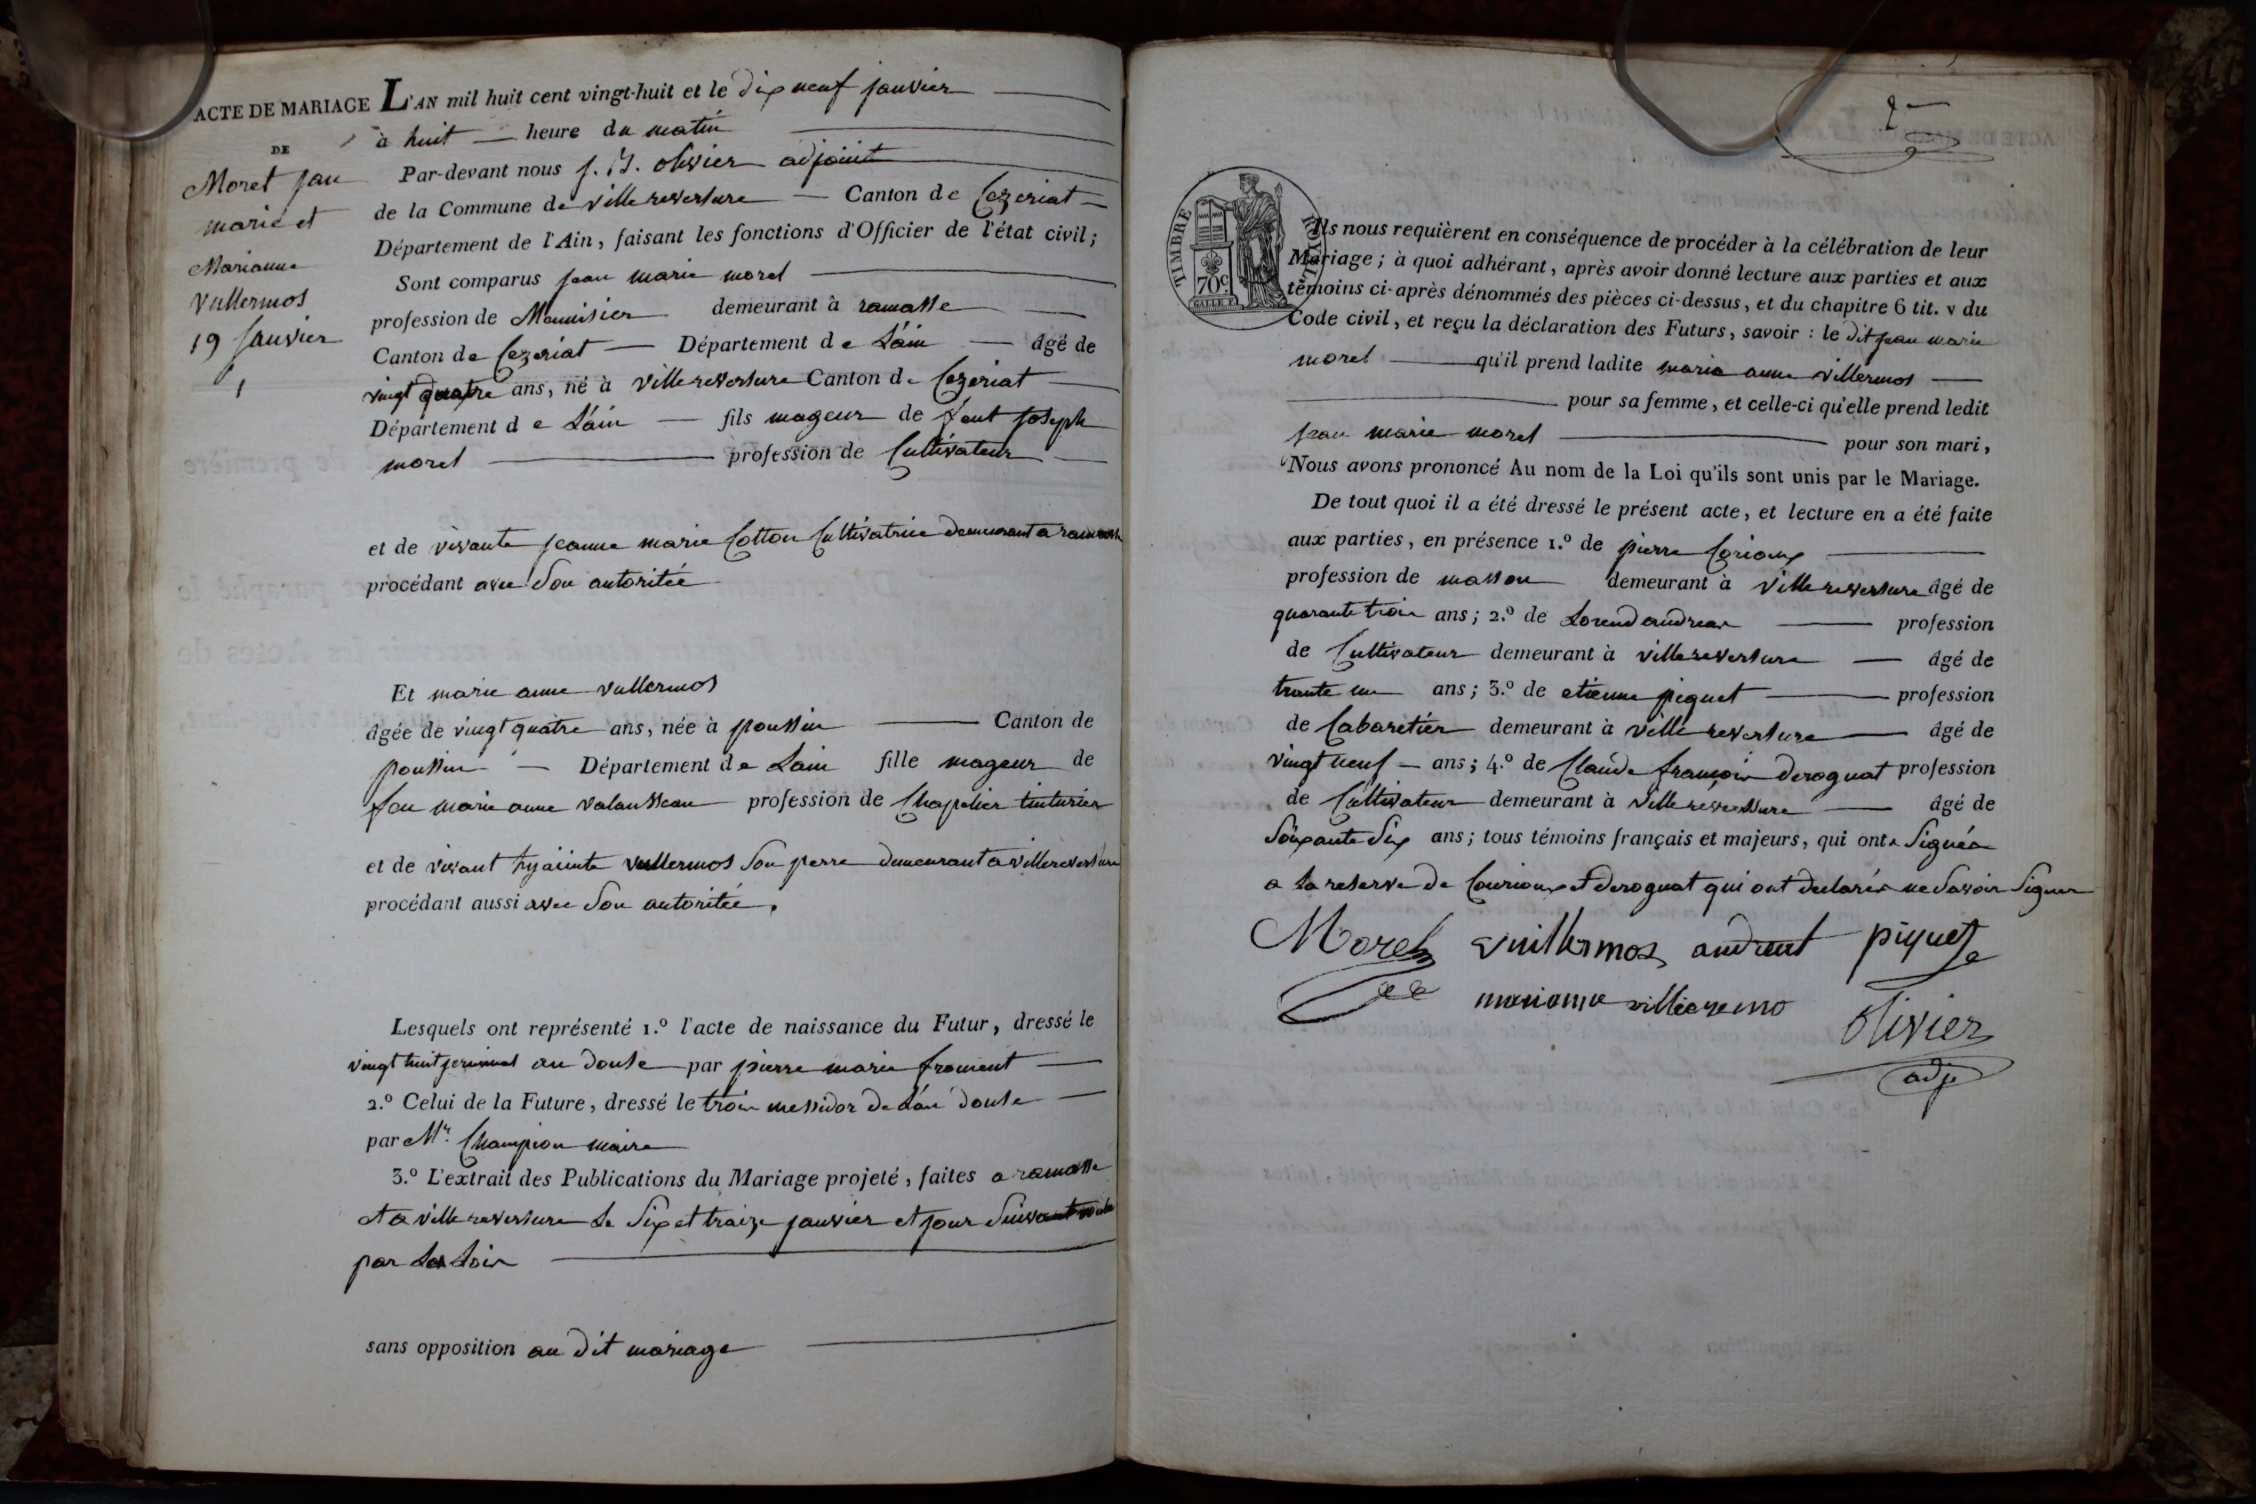 ACTE DE MARIAGE
DE
Moret jan
marie et
Marianne
Vullermos
19 Janvier
1
L'AN mil huit cent vingt-huit et le dix neuf janvier
à huit heure du matin
Par-devant nous j. B. olivier adjoint
de la Commune de villereversure Canton de Cezeriat
Département de l'Ain, faisant les fonctions d'Officier de l'état civil;
Sont comparus jean marie morel
profession de Menuisier demeurant à ramasse
Canton de Cezeriat Département de L'ain âgé de
vingt quatre ans, né à villereversure Canton de Cezeriat
Département de L'ain fils mageur de feut joseph
morel profession de Cultivateur
et de vivante jeanne marie Cotton Cultivatrice demeurant a ramasse
procédant avec Son autoritée
Et marie anne vullermos
âgée de vingt quatre ans, née à poussin Canton de
poussin Département de Lain fille mageur de
feu marie anne valansseau profession de Chapelier tinturier
et de vivant hyaiinte vullermos Son perre demeurant a villereversure
procédant aussi avec Son autoritée.
Lesquels ont représenté 1.º l'acte de naissance du Futur, dressé le
vingt huit jerminal an douse par pierre marie froment
2.º Celui de la Future, dressé le trois messidor de L'an douse
par Mr. Champion maire
3.º L'extrait des Publications du Mariage projeté, faites a ramasse
et a villereversure Le Six et traize janvier et jour Suivant
par La Loix
sans opposition au dit mariage
2
TIMBRE ROYAL
70c.
Ils nous requièrent en conséquence de procéder à la célébration de leur
Mariage; à quoi adhérant, après avoir donné lecture aux parties et aux
témoins ci-après dénommés des pièces ci-dessus, et du chapitre 6 tit. v du
Code civil, et reçu la déclaration des Futurs, savoir: le dit jean marie
morel qu'il prend ladite marie anne villermos
pour sa femme, et celle-ci qu'elle prend ledit
jean marie morel pour son mari,
Nous avons prononcé Au nom de la Loi qu'ils sont unis par le Mariage.
De tout quoi il a été dressé le présent acte, et lecture en a été faite
aux parties, en présence 1.º de pierre Corioux
profession de masson demeurant à villereversure âgé de
quarante trois ans; 2.º de Lorend andreas profession
de Cultivateur demeurant à villereversure âgé de
trante un ans; 3.º de etienne piquet profession
de Cabaretier demeurant à villereversure âgé de
vingt neuf ans; 4.º de Claude françois deroguat profession
de Cultivateur demeurant à villereversure âgé de
Soixante Six ans; tous témoins français et majeurs, qui ont Signéa
a La reserve de Courioux et deroguat qui ont declarés ne Savoir Signer
Morel vuillermos andreut piquet
marianne villeermo
Olivier
adj